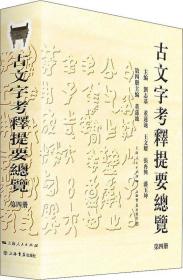 古文字考釋提要總覽
主編 劉志基 董蓮池 王文耀 張再興 潘玉坤
第四册主編 董蓮池
古文字考釋提要總覽
第四册
上海人民出版社